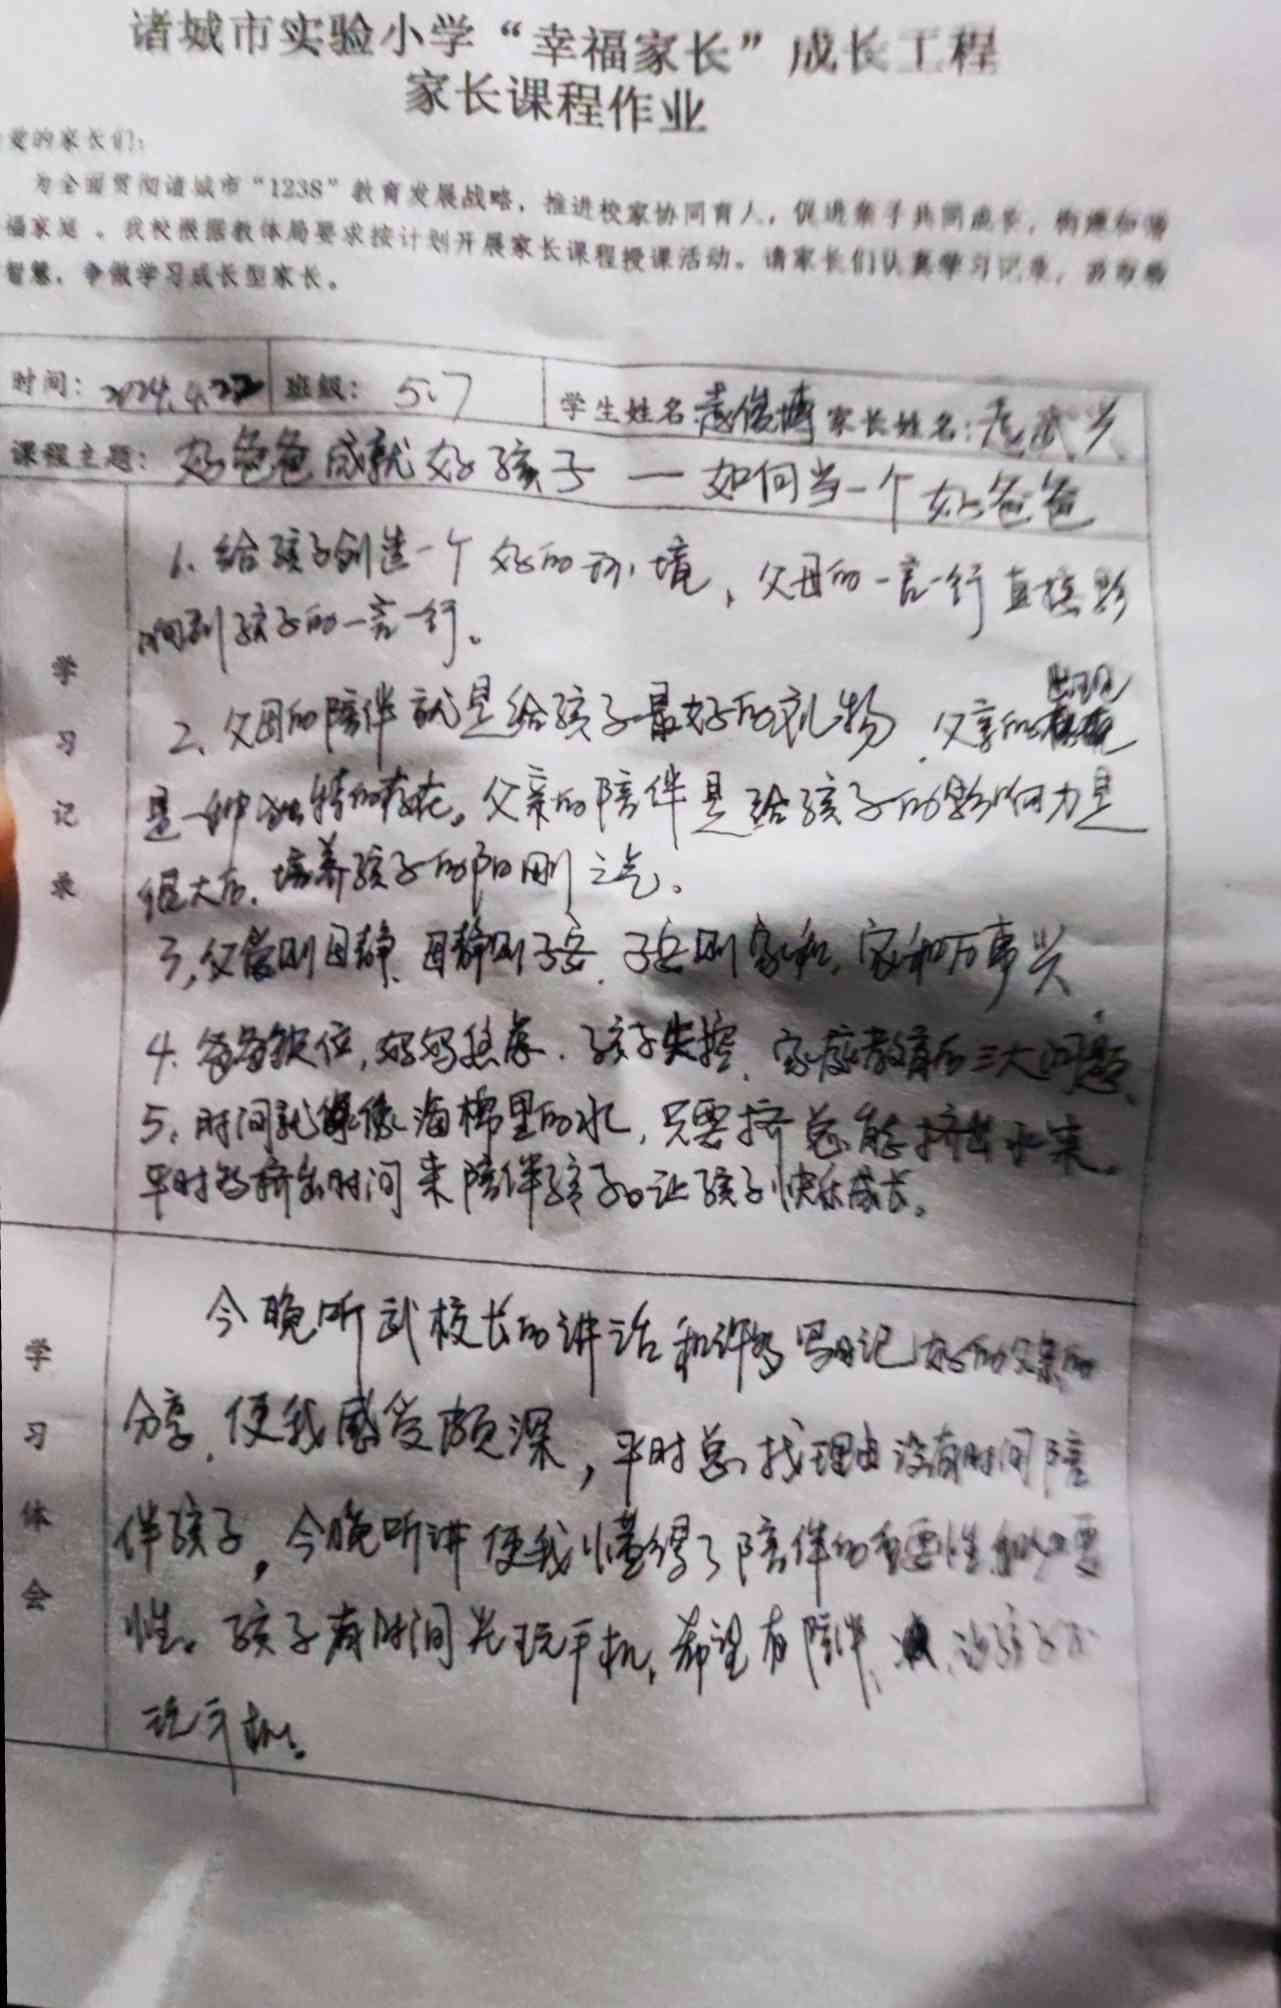 诸城市实验小学“幸福家长”成长工程
家长课程作业
爱的家长们：
为全面贯彻诸城市“1238”教育发展战略，推进校家协同育人，促进亲子共同成长，构建和谐
福家庭。我校根据教体局要求按计划开展家长课程授课活动。请家长们认真学习记录，
智慧，争做学习成长型家长。
时间：2024.4.22 班级：5.7 学生姓名 俊博 家长姓名： 武兴
课程主题：好爸爸成就好孩子 — 如何当一个好爸爸
学习记录
1、给孩子创造一个好的环境，父母的一言一行直接影
响到孩子的一言一行。
2、父母的陪伴就是给孩子最好的礼物，父亲的出现
是一种独特的存在。父亲的陪伴是给孩子的影响力是
很大的、培养孩子的阳刚之气。
3、父 则母静、母静则子安、子安则家和，家和万事兴
4、爸爸缺位，妈妈焦虑、孩子失控、家庭教育的三大问题、
5、时间就像海棉里的水，只要挤总能挤出水来。
平时多挤出时间来陪伴孩子。让孩子快乐成长。
学习体会
今晚听武校长的讲话和许多写日记好的父亲的
分享，使我感受颇深，平时总找理由没有时间陪
伴孩子，今晚听讲使我懂得了陪伴的重要性和必要
性。孩子有时间光玩手机，希望有陪伴、让孩子不
玩手机。